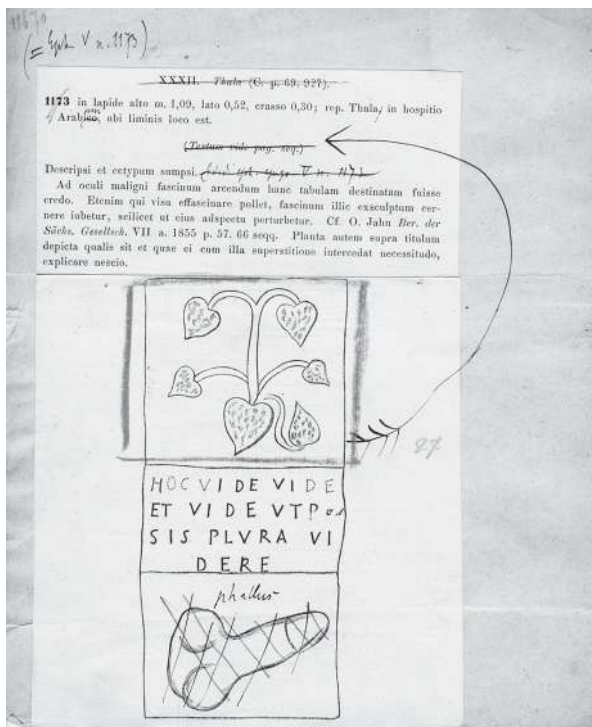 11670
(= Eph V n. 1173)
XXXII. Thala (C. p. 69. 927).
1173 in lapide alto m. 1,09, lato 0,52, crasso 0,30; rep. Thala, in hospitio
Arabico, ubi liminis loco est.
(Textum vide pag. seq.)
Descripsi et ectypum sumpsi. V n. 1173
Ad oculi maligni fascinum arcendum hanc tabulam destinatam fuisse
credo. Etenim qui visu effascinare pollet, fascinum illic exsculptum cer-
nere iubetur, scilicet ut eius adspectu perturbetur. Cf. O. Jahn Ber. der
Sächs. Gesellsch. VII a. 1855 p. 57. 66 seqq. Planta autem supra titulum
depicta qualis sit et quae ei cum illa superstitione intercedat necessitudo,
explicare nescio.
27
HOC VIDE VIDE
ET VIDE VT Pos
SIS PLVRA VI
DERE
phallus